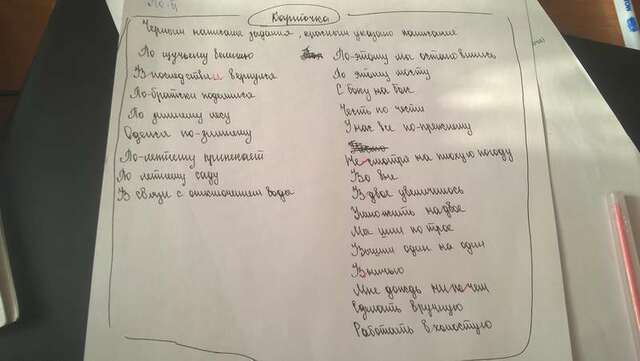 Карточка
Черным написаны задания, красным указано написание
По щучьему велению
В последствии вернулся
По-братски поделился
По зимнему лесу
Оделся по-зимнему
По-летнему припекает
По летнему саду
В связи с отключением воды
По-этому мы остановились
По этому мосту
С боку на бок
Честь по чести
У нас все по-прежнему
Не смотря на плохую погоду
Во вне
В двое увеличилось
Умножить на двое
Мы шли по трое
Вышли один на один
В ничью
Мне дождь ни по чем
Сделать вручную
Работать в холостую